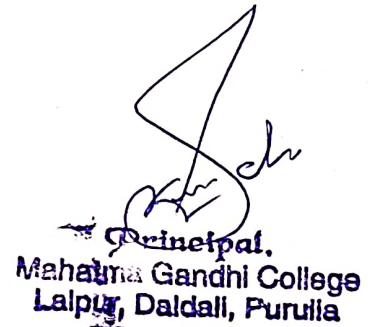 Principal,
Mahatma Gandhi College
Lalpur, Daldali, Purulia